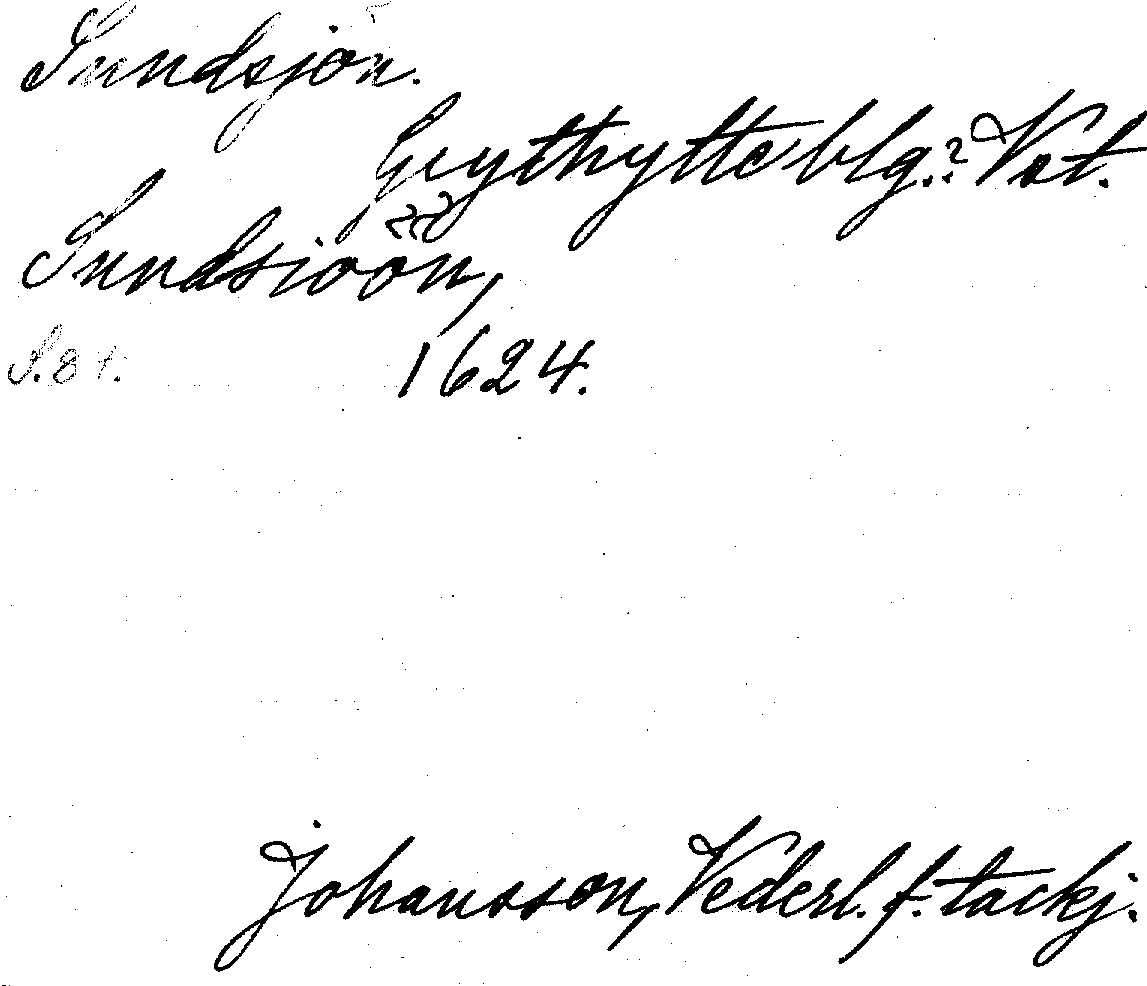 Sundsjön.
Grythytteblg.? Vstl.
Sundsioön,
S. 81. 1624.
Johansson, Vederl. f. tackj.